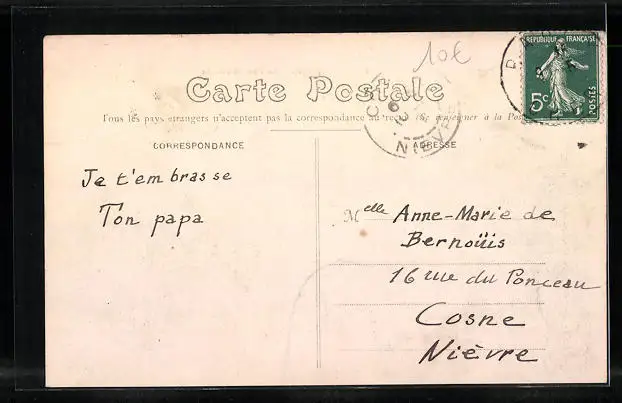 10€
Carte Postale
REPUBLIQUE FRANÇAISE
5c
POSTES
Tous les pays étrangers n'acceptent pas la correspondance au recto (Se renseigner à la Poste)
NIÈVRE
CORRESPONDANCE
ADRESSE
Je t'embrasse
Ton papa
Melle Anne-Marie de
Bernoüis
16 rue du Ponceau
Cosne
Nièvre